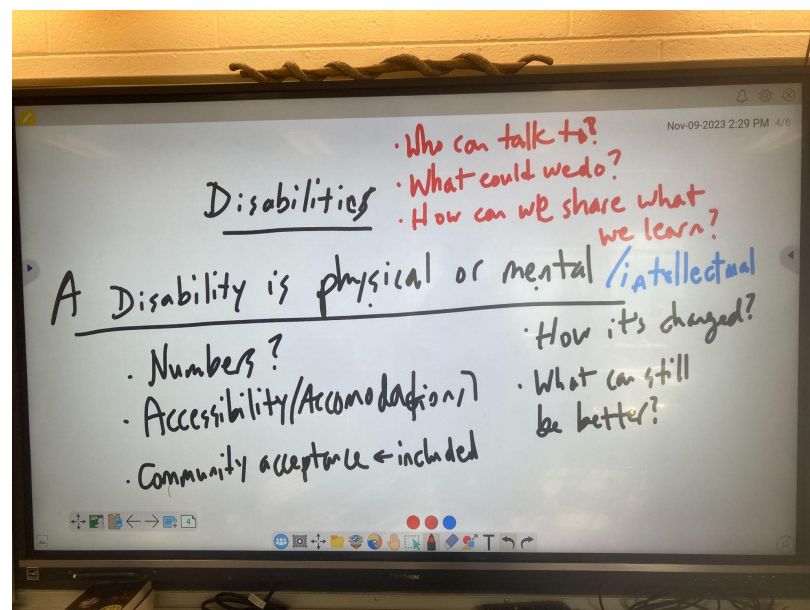 Nov-09-2023 2:29 PM 4/6
· Who can talk to?
· What could we do?
· How can we share what
we learn?
Disabilities
A Disability is physical or mental /intellectual
· Numbers?
· Accessibility/Accomodations?
· Community acceptance ← included
· How it's changed?
· What can still
be better?
4
T
ViewSonic